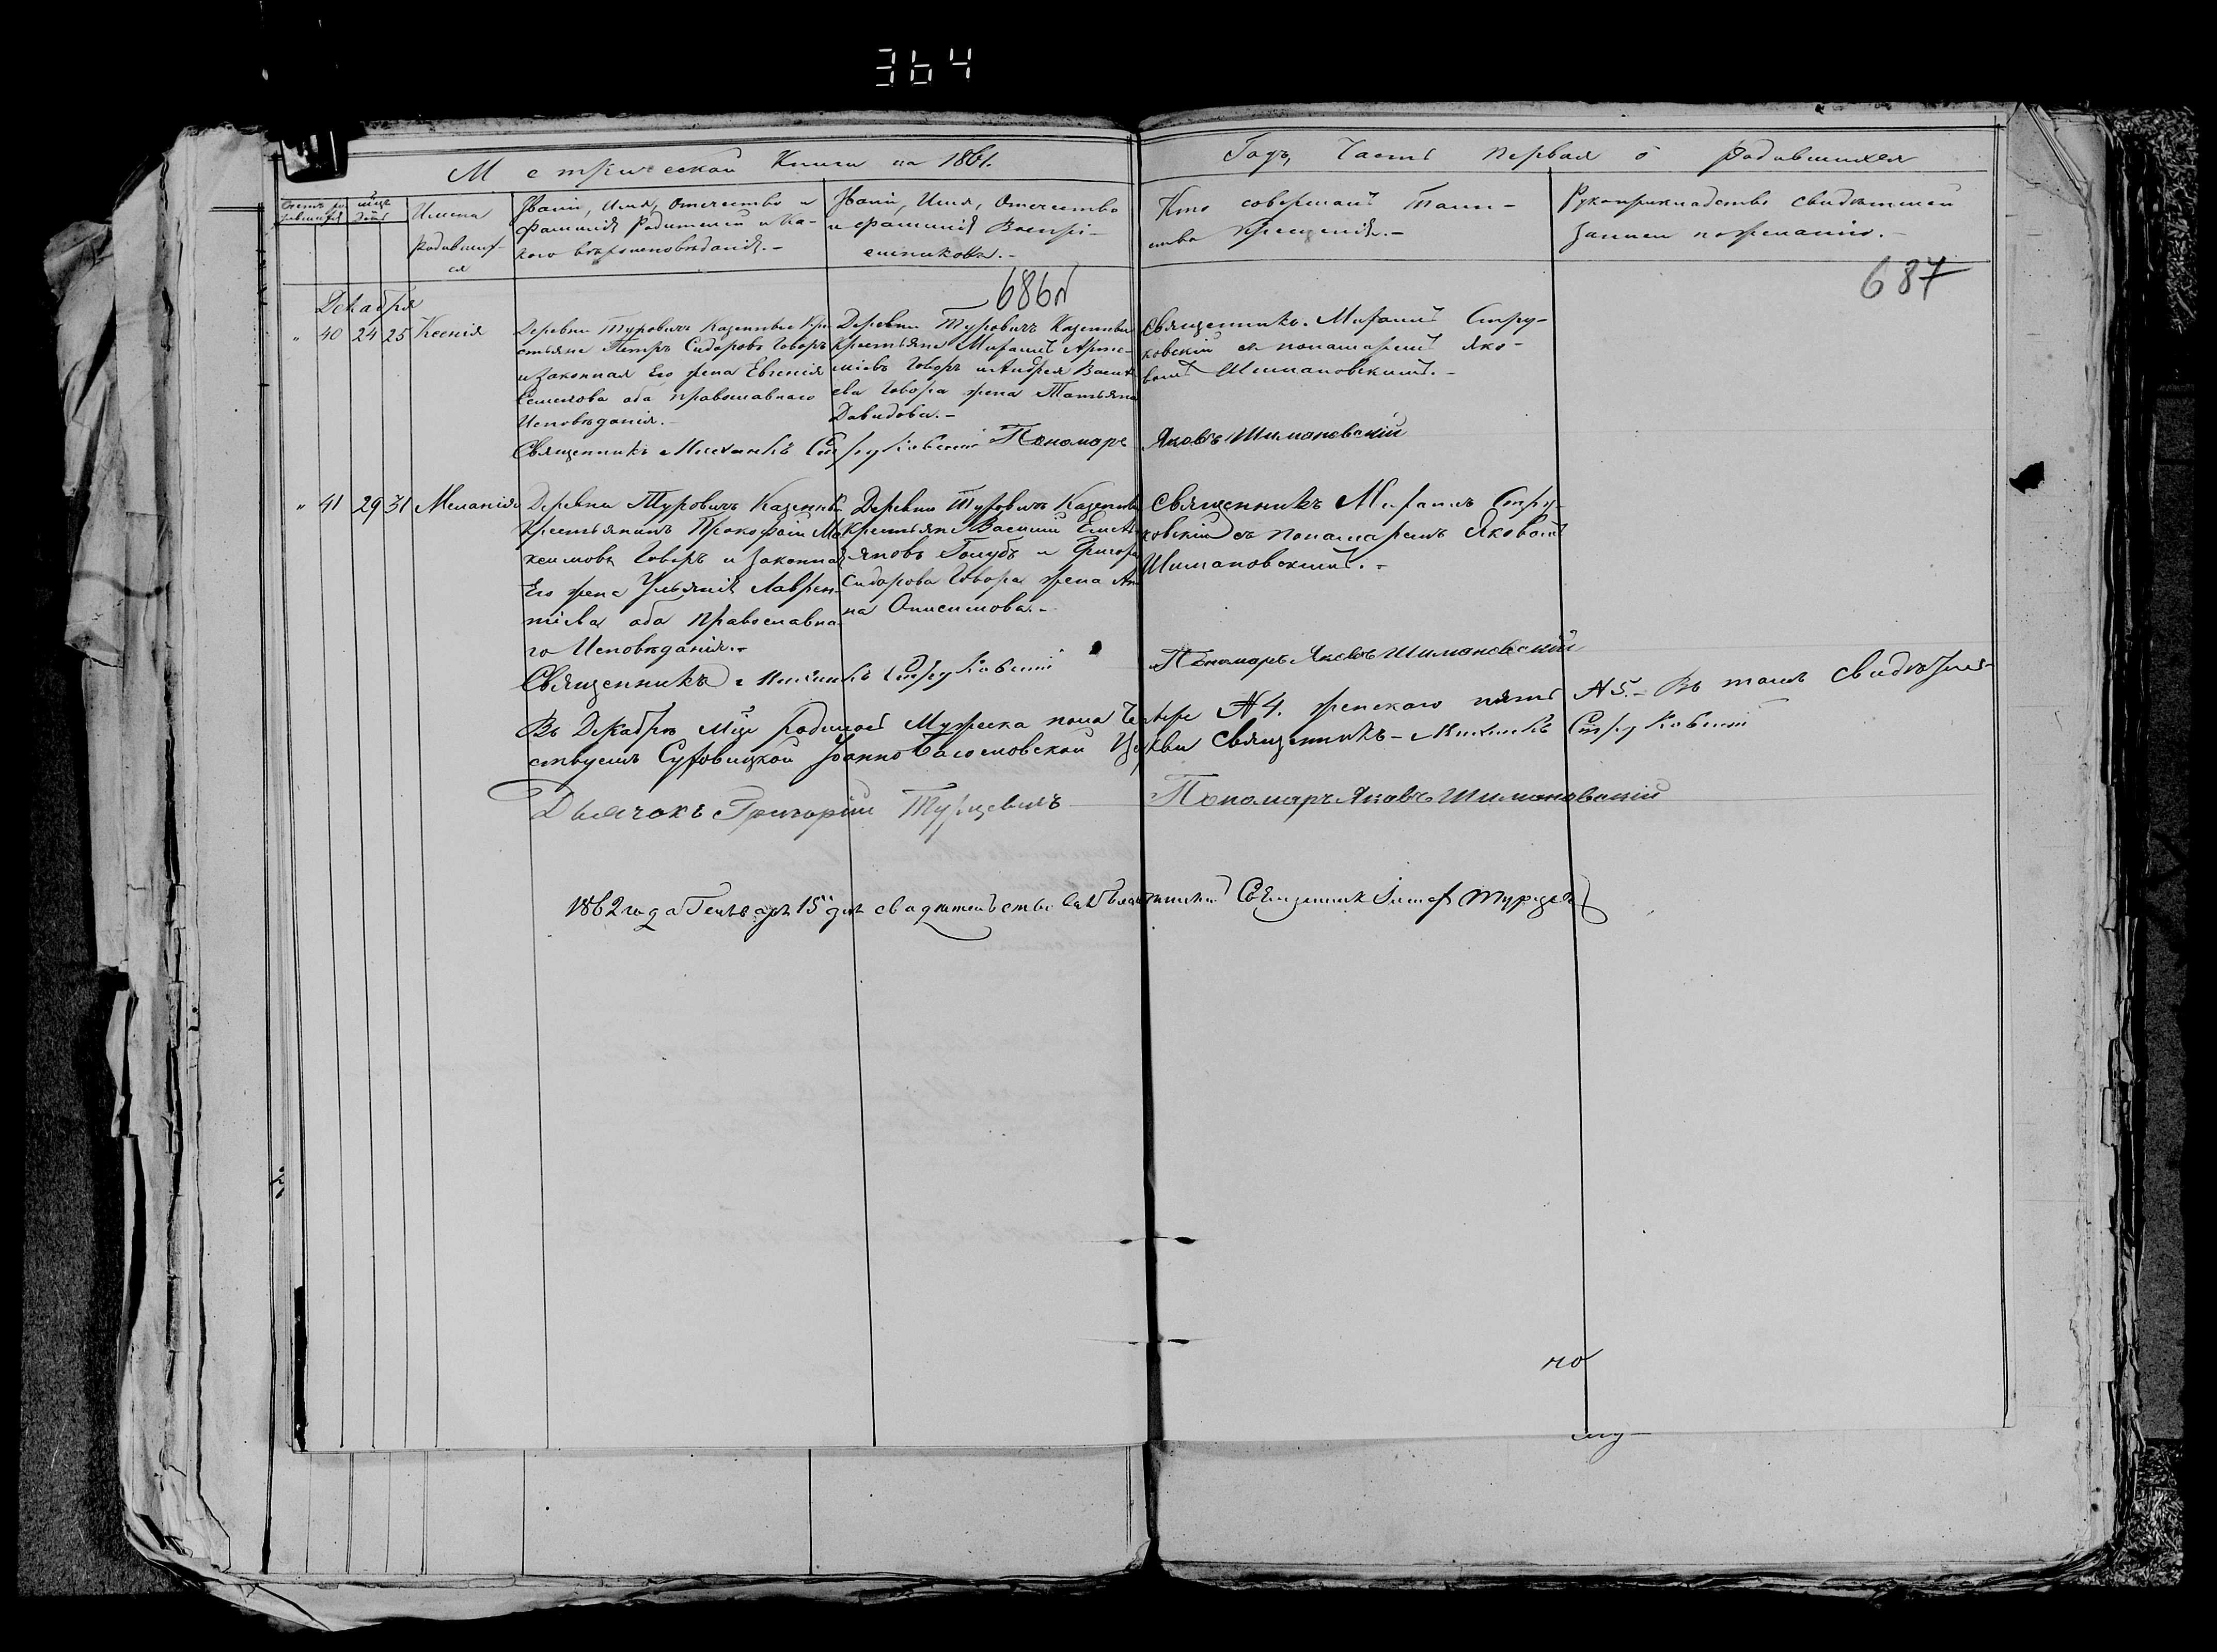 364
Метрической Книги на 1861.
Годъ, Часть первая о родившихся
Счетъ ро
дившихся
Мцъ
Дни
Имена
родивших
ся
Званіе, Имя, Отчество и
фамилія Родителей и Ка-
кого вѣроисповѣданія.-
Званіе, Имя, Отчество
и фамилія Воспрі-
емниковъ.-
Кто совершалъ Таин-
ство крещенія.-
Рукоприкладство свидѣтелей
записи по желанію.-
686
687
Декабря
" 40 24 25 Ксенія
Деревни Туровичъ Казенные Кре
стьяне Петръ Сидоровъ Говоръ
и законная Его жена Евгенія
Семенова оба православнаго
Исповѣданія.-
Деревни Туровичъ Казенные
крестьяне Михаилъ Арте-
міевъ Говоръ и Андрея Васил
ева Говора жена Татьяна
Давидова.-
Священникъ Михаилъ Стру-
ковскій съ пономаремъ Яко-
вомъ Шимановскимъ.-
Священникъ Михаилъ Струковскій Пономарь Яковъ Шимановскій
" 41 29 31 Меланія
Деревни Туровичъ Казенный
Крестьянинъ Прокофій Ма
ксимовъ Говоръ и законная
Его жена Ульянія Лаврен-
тіева оба Православна-
го Исповѣданія.-
Деревни Туровичъ Казенные
Крестьяне Василій Емель
яновъ Голубъ и Григорія
Сидорова Говора жена Ан
на Онисимова.-
Священникъ Михаилъ Стру-
ковскій съ пономаремъ Яковомъ
Шимановскимъ.-
Священникъ Михаилъ Струковскій
Пономарь Яковъ Шимановскій
Въ Декабрѣ Мцѣ родилось Мужеска пола Четыре №4. женскаго пять №5.- Въ томъ свидѣтель-
ствуемъ Іоанно Богословской Церкви Священникъ - Михаилъ Струковскій
Дьячокъ Григорій Турцевичъ
Пономарь Яковъ Шимановскій
1862 года Генваря 15 дня Священник Турцевич